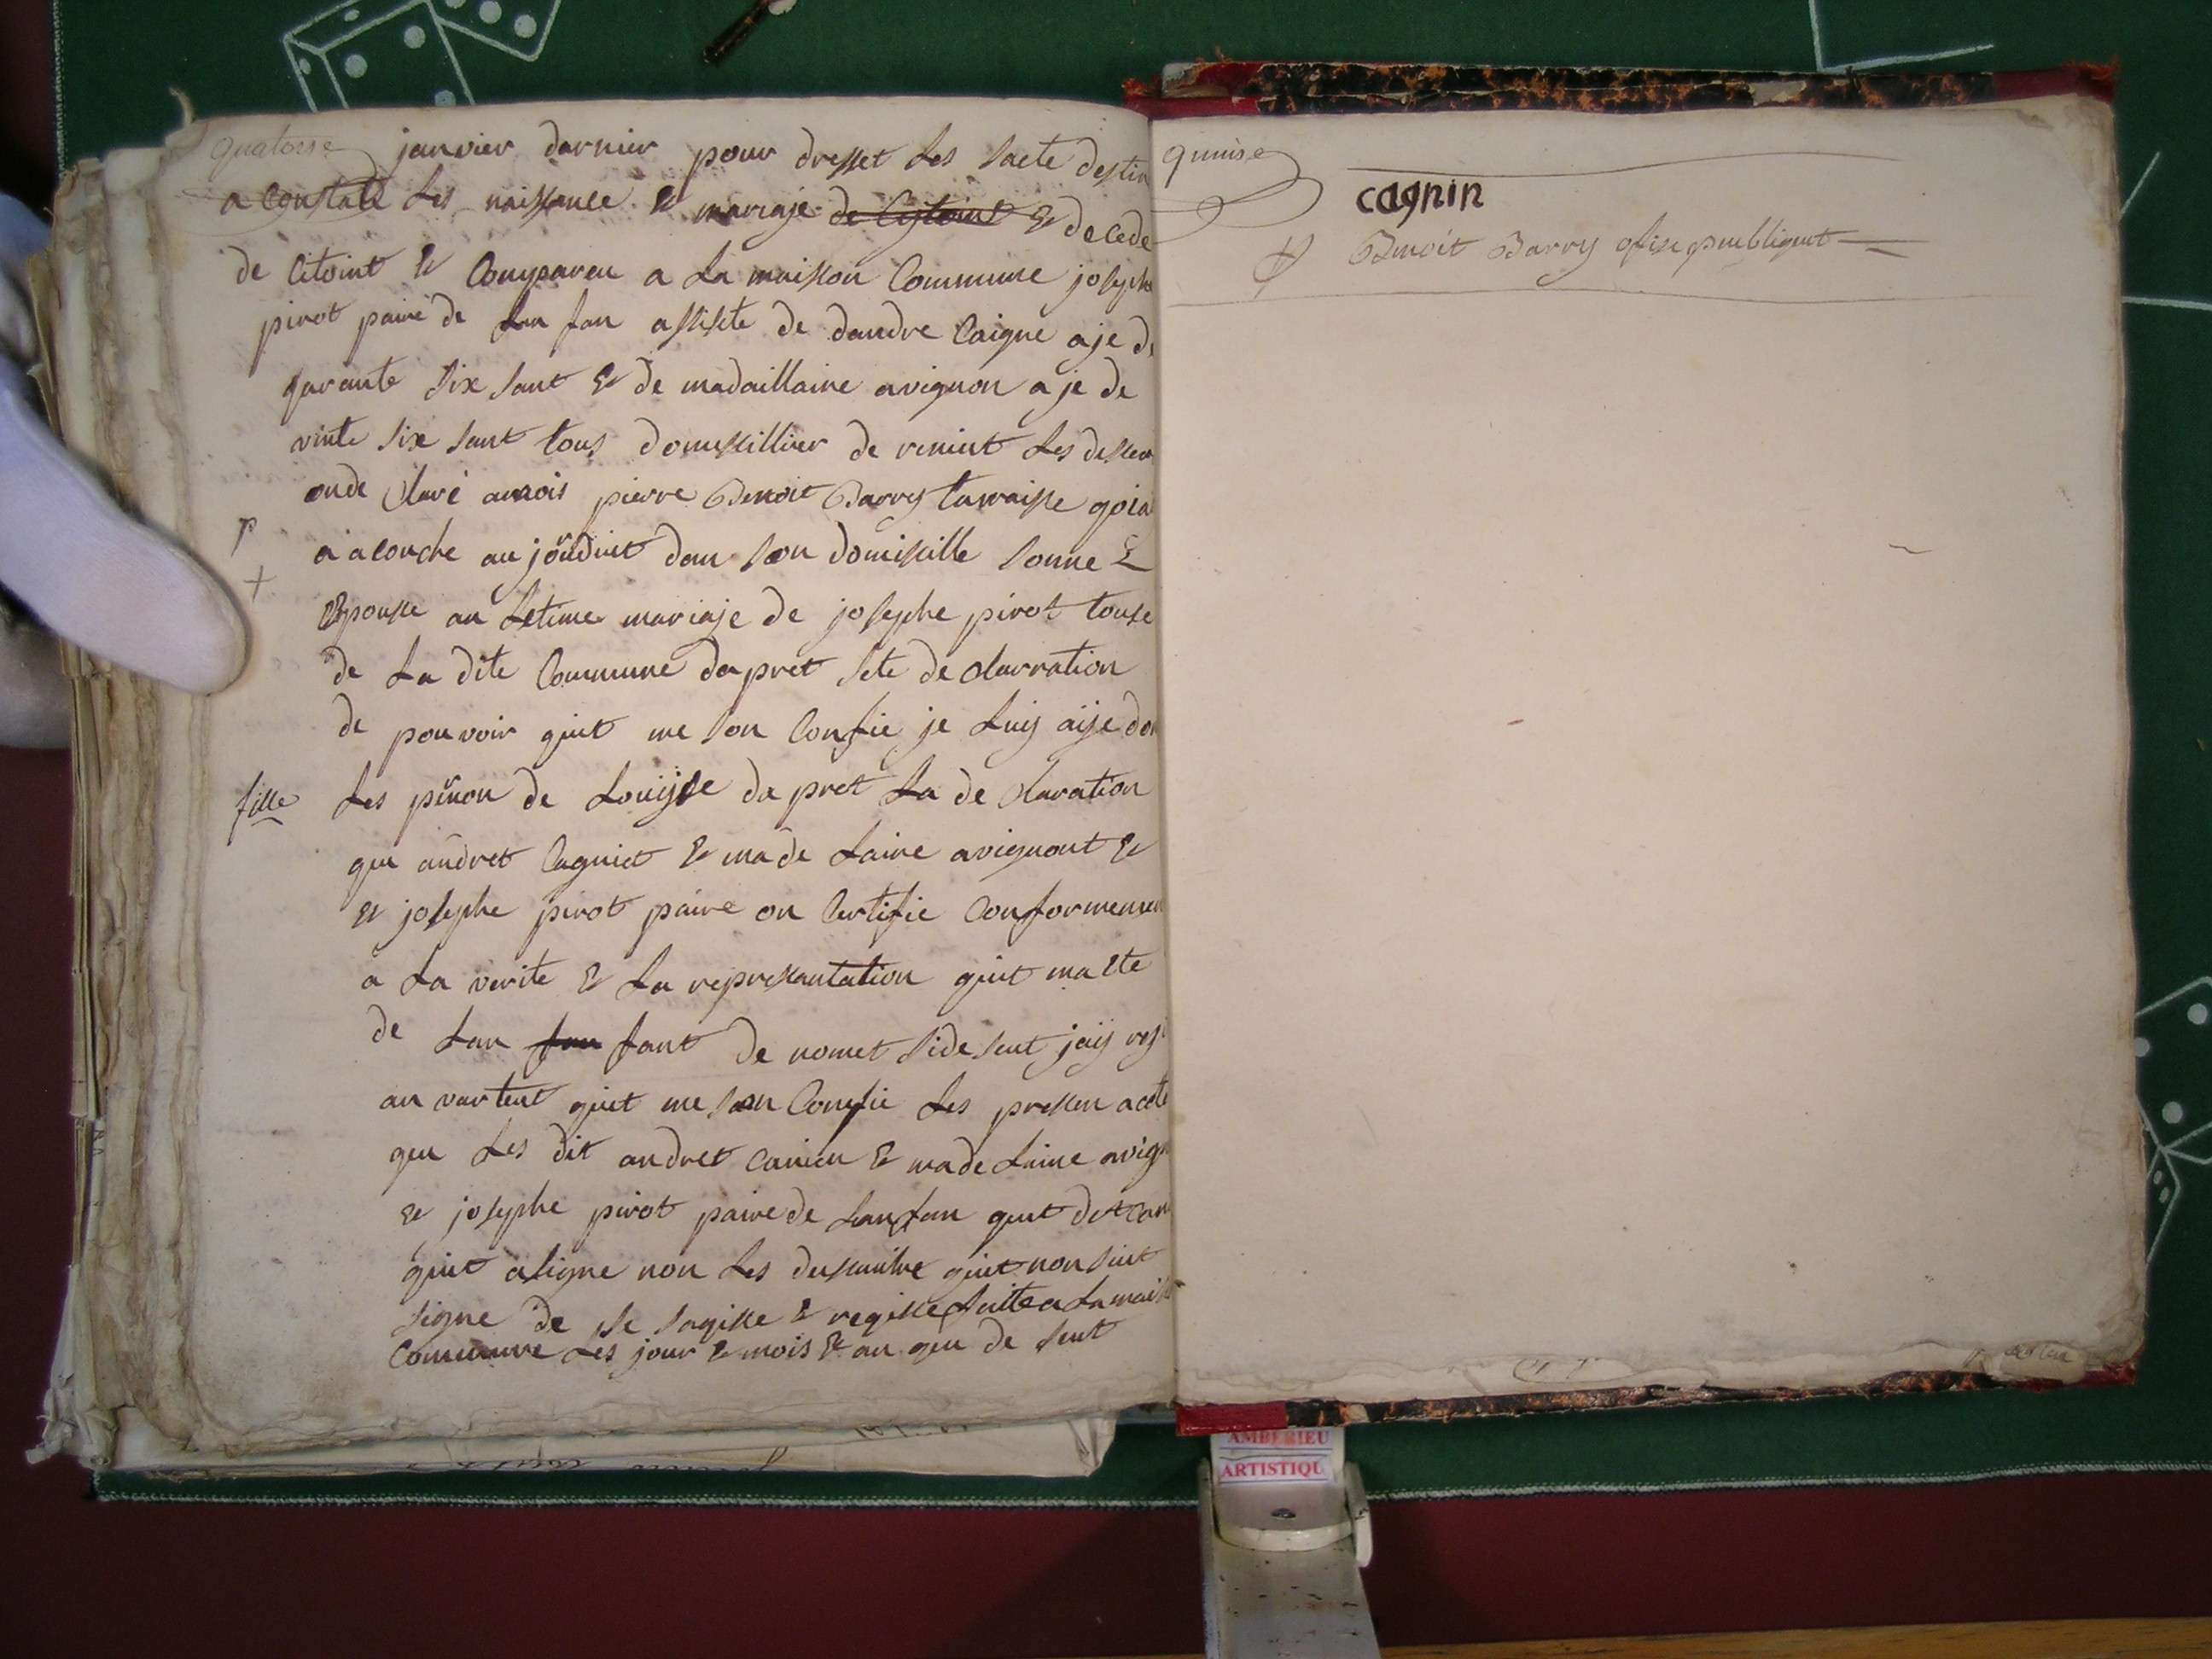 quatorse
janvier darnier pour dresset Les sacte destin
a Constate Les naissance & mariaje de Cytoint & decede
de Citoint & Compareu a La maisson Commune josephe
pirot paire de Lan fan assiste de dandre Caigne aje de
qarante six sant & de madaillaine avignon aje de
vinte six sant tous domissillier de
onde Claré pierre Benoit Barry
p
a acouche au jourduit dan son domisille sonne &
+
Epousse an Letime mariaje de josephe pirot touse
de La dite Commune da pret sete de clarration
de pouvoir quit me son Confie je Luij aije do
fille
Les prénon de Louijse da pret La de claration
que andret Cagniet & made Laine avignont &
& josephe pirot paire on Certifie Conformemen
a La verite & La represantation quit ma ete
de Lan fan fant de nomet side sent jaij
an vartent quit me son Confie Les pressen acte
que Les dit andret Canien & made Laine avign
& josephe pirot paire de Lanfan quit
quit a signe non Les quit non sint
signe de se & faite a La maiss
Commune Les jour & mois & an que de sent
quinse
cagnin
Benoit Barry ofise puebliquet
AMBERIEU
ARTISTIQU